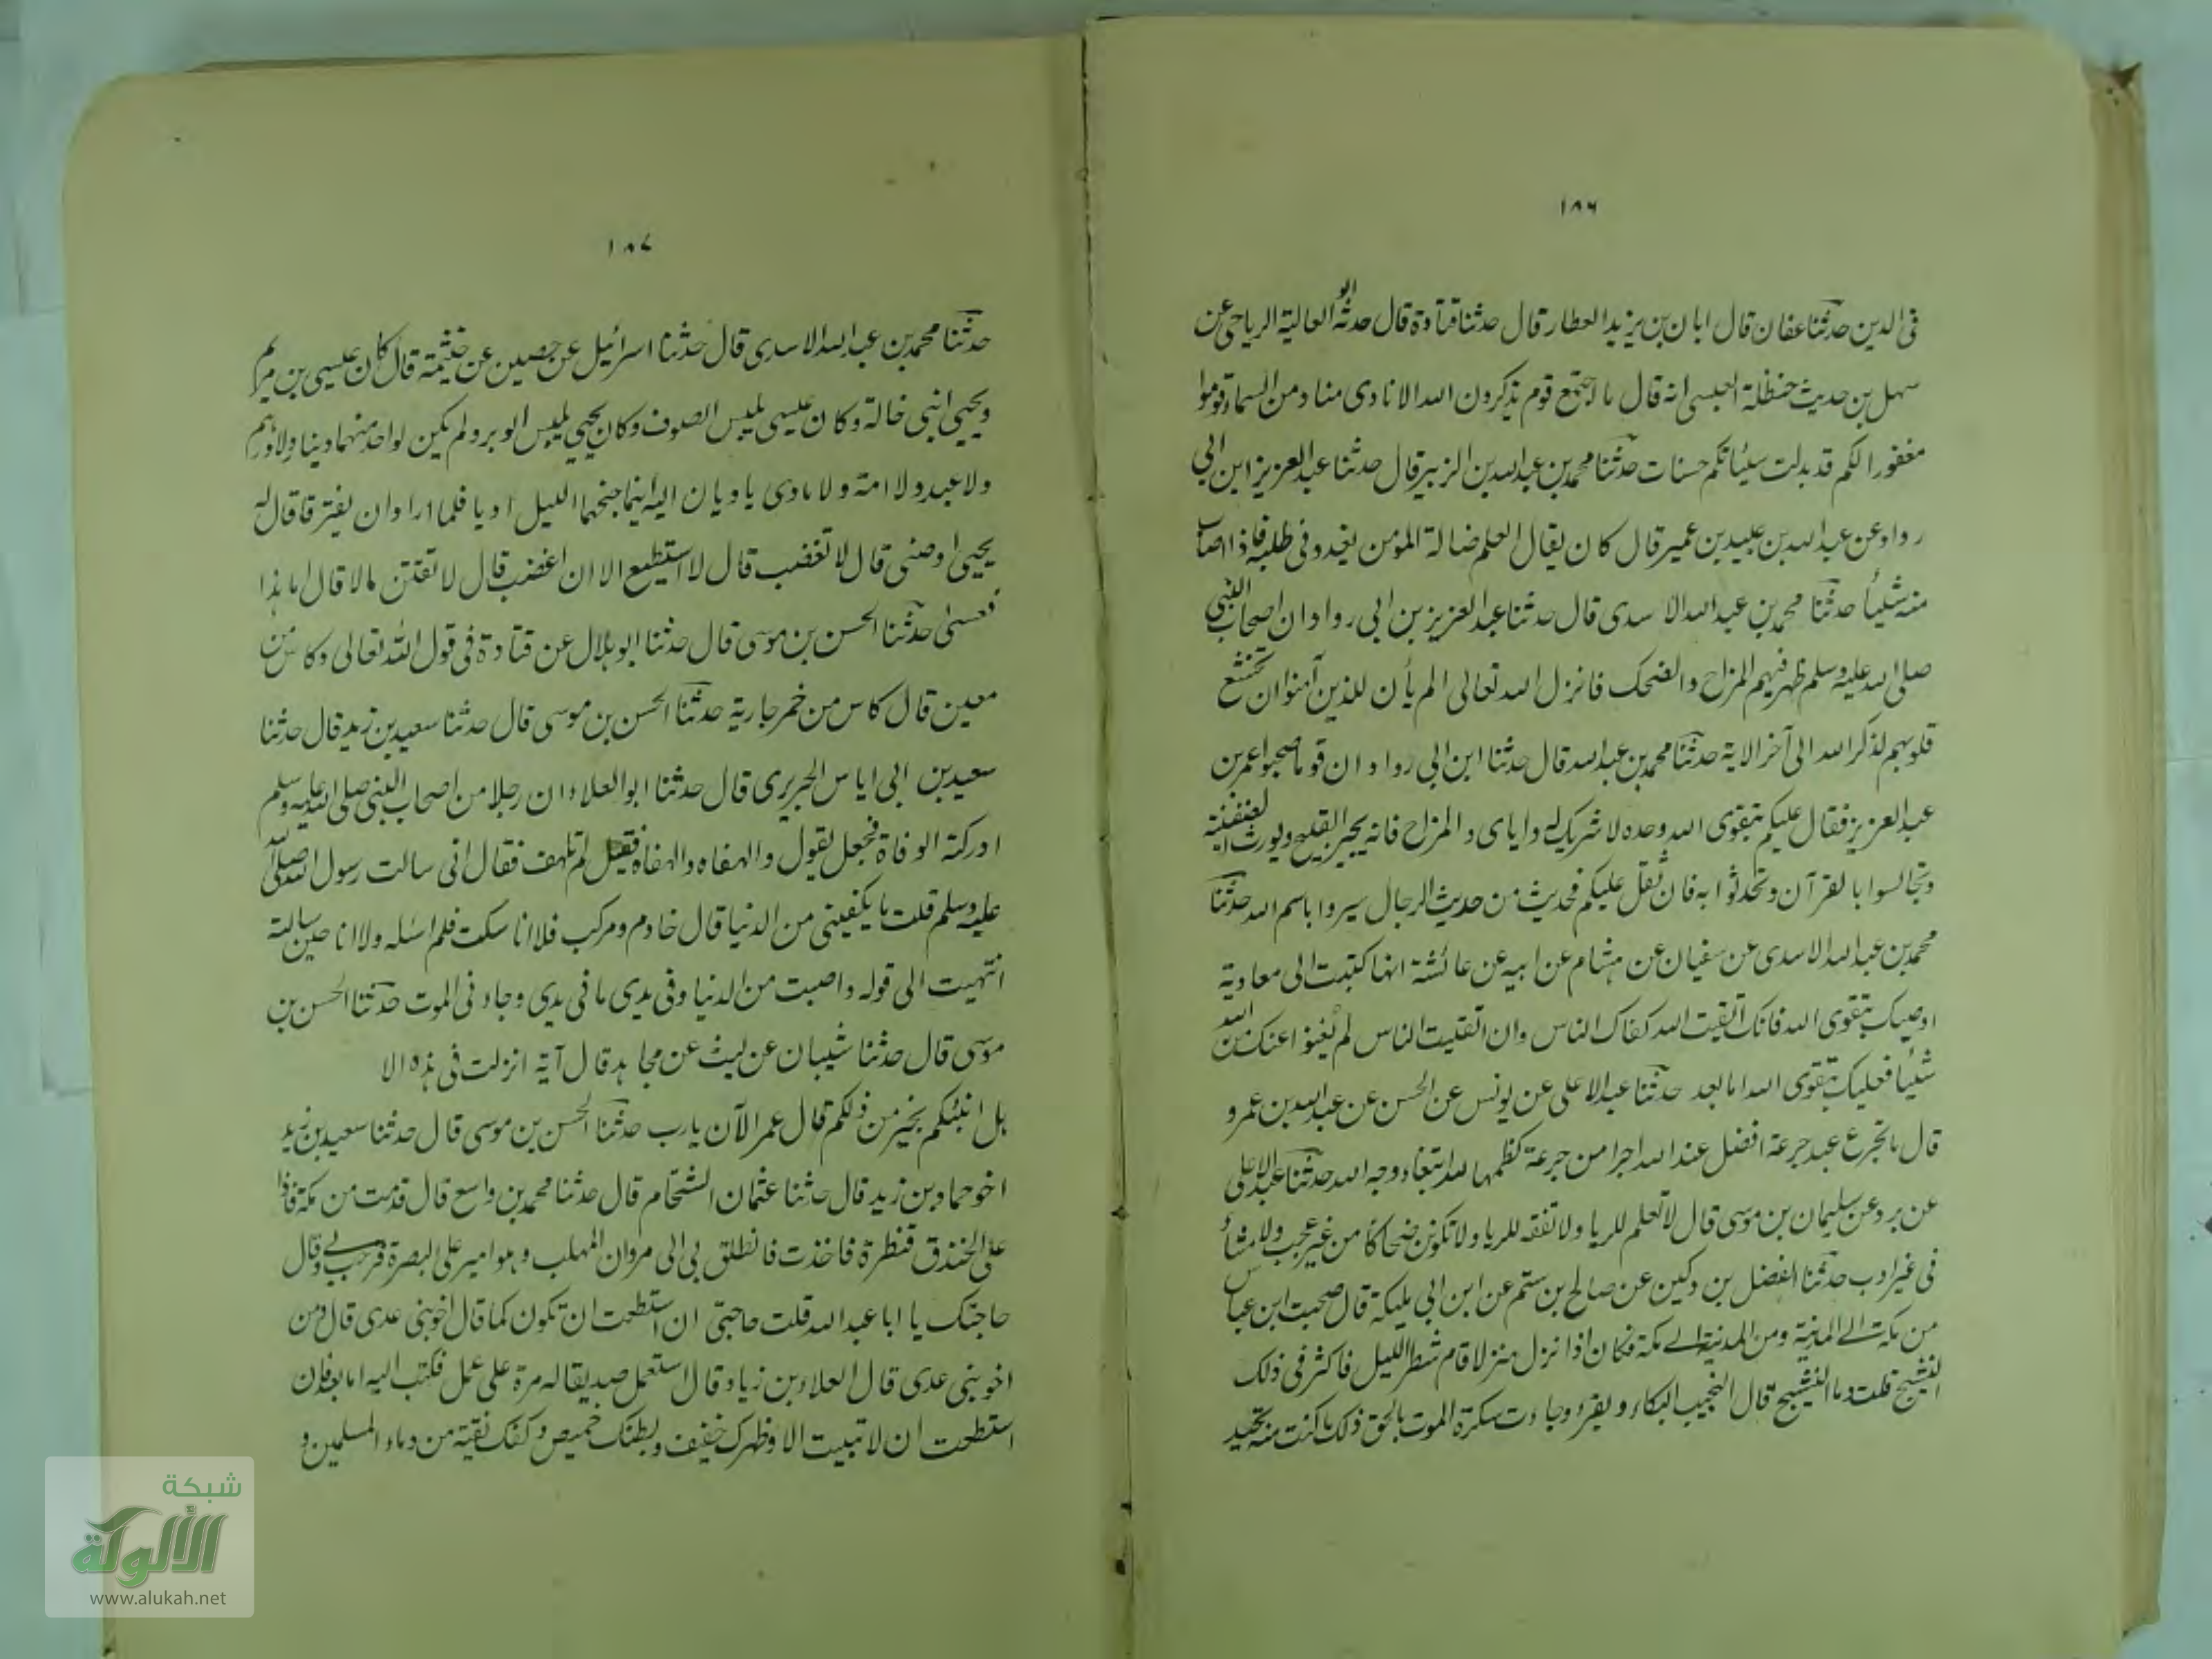 ١٨٦
فى الدين حدثنا عفان قال ابان بن يزيد العطار قال حدثنا قتادة قال حدثه ابو العالية الرياحى عن
سهل بن حديث حنظلة العبسى انه قال ما اجتمع قوم يذكرون الله الا نادى مناد من السماء قوموا
مغفورا لكم قد بدلت سيئاتكم حسنات حدثنا محمد بن عبد الله بن الزبير قال حدثنا عبد العزيز ابن ابي
رواد عن عبد الله بن عبيد بن عمير قال كان يقال العلم ضالة المؤمن يغدو فى طلبه فاذا اصاب
منه شيئا حدثنا محمد بن عبد الله الاسدى قال حدثنا عبد العزيز بن ابي رواد ان اصحاب النبي
صلى الله عليه وسلم ظهر فيهم المزاح والضحك فانزل الله تعالى الم يأن للذين آمنوا ان تخشع
قلوبهم لذكر الله الى آخر الاية حدثنا محمد بن عبد الله قال حدثنا ابن ابي رواد ان قوما صحبوا عمر بن
عبد العزيز فقال عليكم بتقوى الله وحده لا شريك له واياى والمزاح فانه يجر القبيح ويورث
وتجالسوا بالقرآن وتحدثوا به فان ثقل عليكم فحديث من حديث الرجال سيروا باسم الله حدثنا
محمد بن عبد الله الاسدى عن سفيان عن هشام عن ابيه عن عائشة انها كتبت الى معاوية
اوصيك بتقوى الله فانك اتقيت الله كفاك الناس وان اتقيت الناس لم يغنوا عنك من الله
شيئا فعليك بتقوى الله اما بعد حدثنا عبد الاعلى عن يونس عن الحسن عن عبد الله بن عمرو
قال ما تجرع عبد جرعة افضل عند الله اجرا من جرعة كظمها لله ابتغاء وجه الله حدثنا عبد الاعلى
عن برد عن سليمان بن موسى قال لا تعلم للريا ولا تفقه للريا ولا تكونن ضحاكا من غير عجب ولا مشاء
فى غير ادب حدثنا الفضل بن دكين عن صالح بن رستم عن ابن ابي مليكة قال صحبت ابن عباس
من مكة الے المدينة ومن المدينة الے مكة فكان اذا نزل منزلا قام شطر الليل فاكثر فى ذلك
النشيج قلت وما النشيج قال النحيب البكاء ويقرء وجاءت سكرة الموت بالحق ذلك ما كنت منه تحيد
١٨٧
حدثنا محمد بن عبد الله الاسدى قال حدثنا اسرائيل عن حصين عن خثيمة قال كان عيسى بن مريم
ويحيى ابنى خالة وكان عيسى يلبس الصوف وكان يحيى يلبس الوبر ولم يكن لواحد منهما دينار ولا درهم
ولا عبد ولا امة ولا ماوى ياويان اليه اينما جنهما الليل اويا فلما ارادا ان يفترقا قال له
يحيى اوصنى قال لا تغضب قال لا استطيع الا ان اغضب قال لا تقتن مالا قال اما هذا
فعسى حدثنا الحسن بن موسى قال حدثنا ابو هلال عن قتادة فى قول الله تعالى وكاس من
معين قال كاس من خمر جارية حدثنا الحسن بن موسى قال حدثنا سعيد بن زيد قال حدثنا
سعيد بن ابي اياس الجريرى قال حدثنا ابو العلاء ان رجلا من اصحاب النبى صلى الله عليه وسلم
ادركته الوفاة فجعل يقول والهفاه والهفاه فقيل لم تلهف فقال انى سالت رسول الله صلى الله
عليه وسلم قلت ما يكفينى من الدنيا قال خادم ومركب فلا انا سكت فلم اسئله ولا انا حين سالته
انتهيت الى قوله واصبت من الدنيا وفى يدى ما فى يدى وجاء فى الموت حدثنا الحسن بن
موسى قال حدثنا شيبان عن ليث عن مجاهد قال آية انزلت فى هذه الا
هل انبئكم بخير من ذلكم قال عمر الآن يارب حدثنا الحسن بن موسى قال حدثنا سعيد بن زيد
اخو حماد بن زيد قال حدثنا عثمان الشحام قال حدثنا محمد بن واسع قال قدمت من مكة فاذا
على الخندق قنطرة فاخذت فانطلق بى الى مروان المهلب وهو امير على البصرة فرحب بے وقال
حاجتك يا ابا عبد الله قلت حاجتى ان استطعت ان تكون كما قال اخو بنى عدى قال ومن
اخو بنى عدى قال العلاء بن زياد قال استعمل صديقا له مرة على عمل فكتب اليه اما بعد فان
استطعت ان لا تبيت الا وظهرك خفيف وبطنك خميص وكفك نقية من دماء المسلمين و
شبكة
الألوكة
www.alukah.net